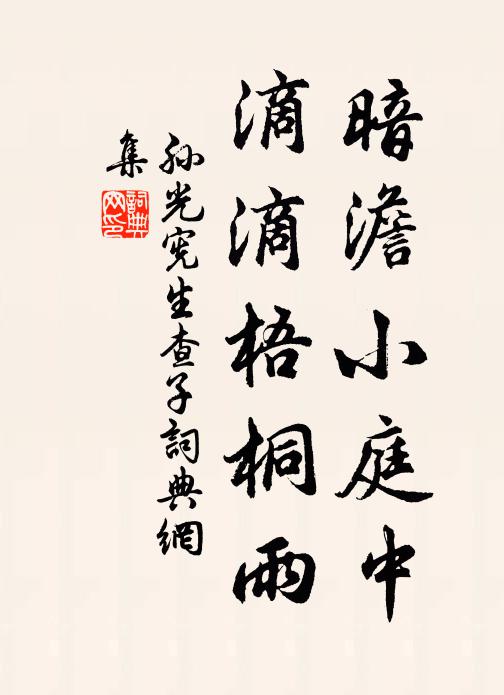 暗澹小庭中
滴滴梧桐雨
孙光宪生查子詞典網
集
詞典网印